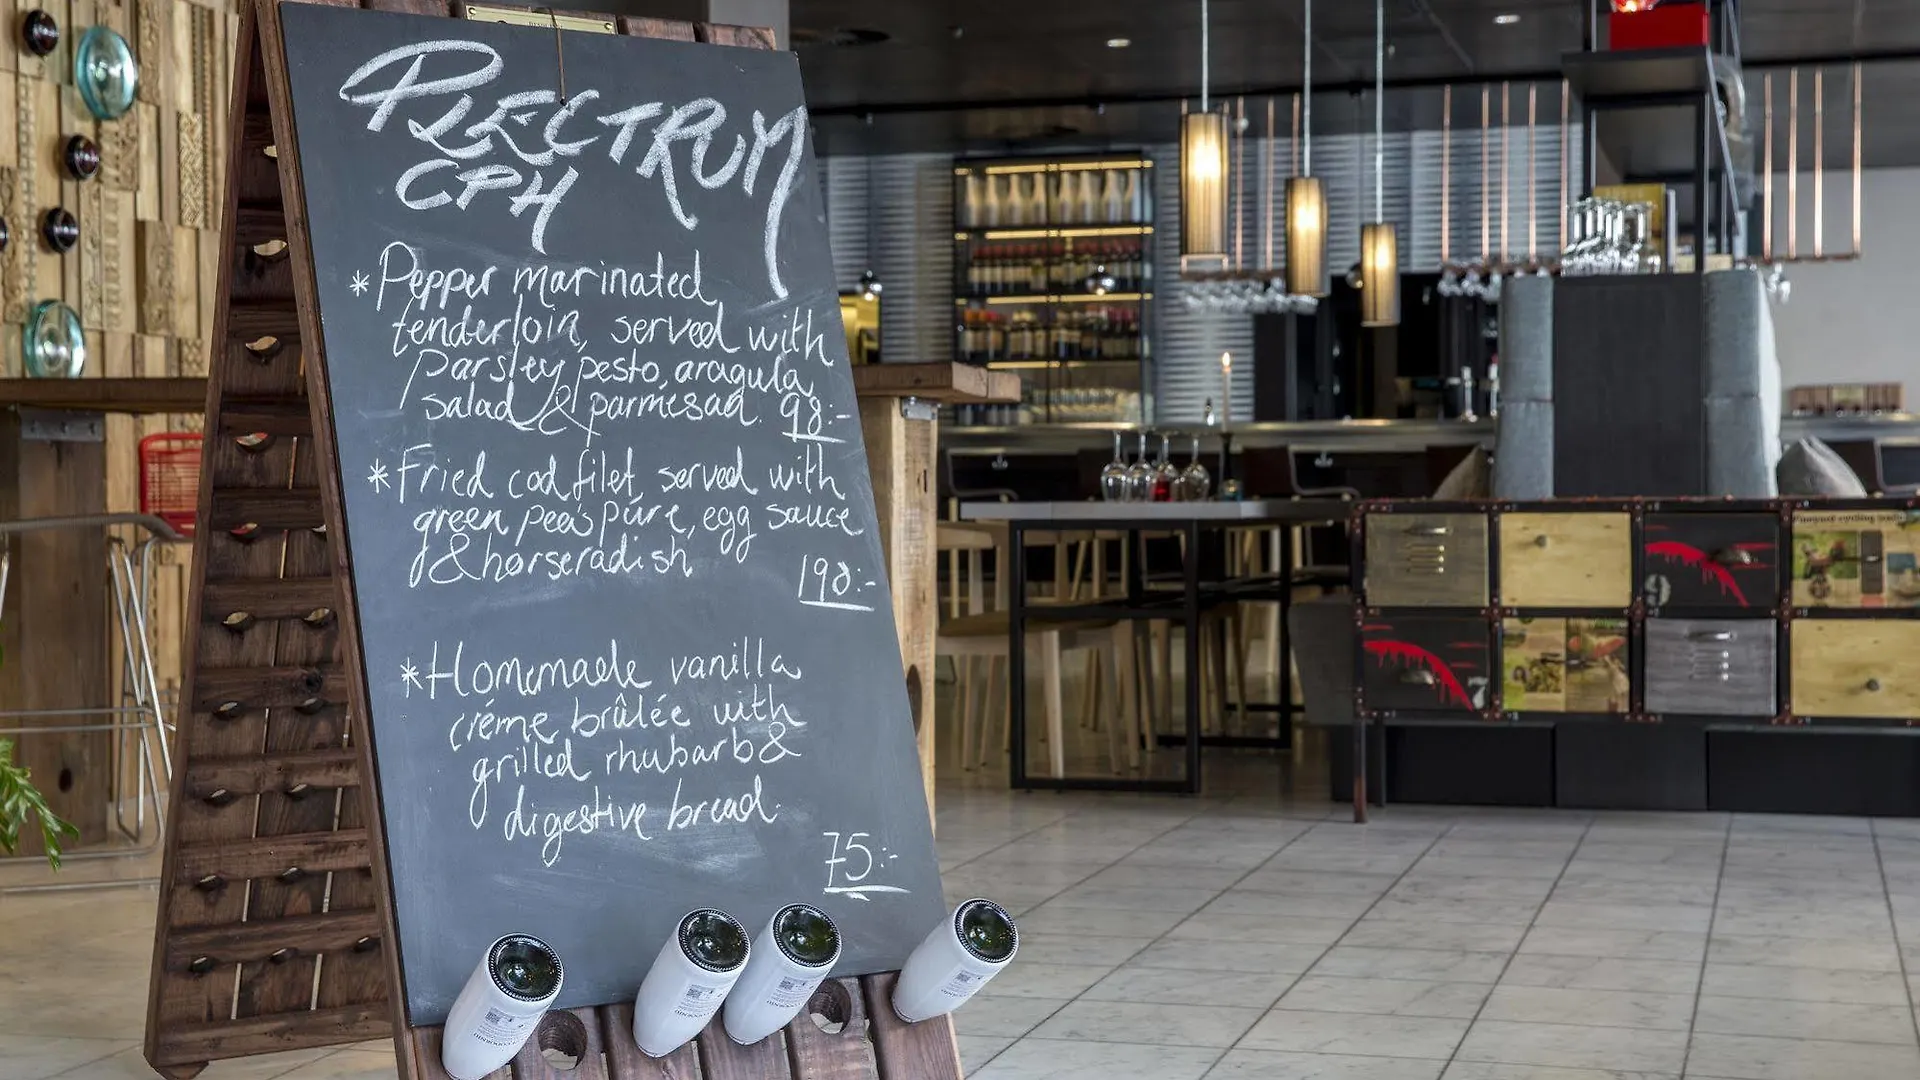 PLECTRUM
CPH
*Pepper marinated
tenderloin, served with
parsley pesto, aragula
salad & parmesad. 98:-
*Fried cod filet, served with
green pea's púre, egg sauce
& horseradish
198:-
*Homemade vanilla
créme brûlée with
grilled rhubarb &
digestive bread.
75:-
9
7